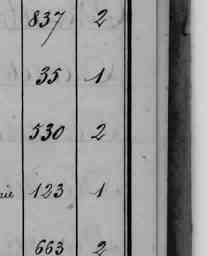 837 2
35 1
530 2
123 1
663 2